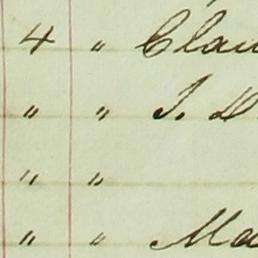 4 " Clau
" " J. H
" "
" " Ma